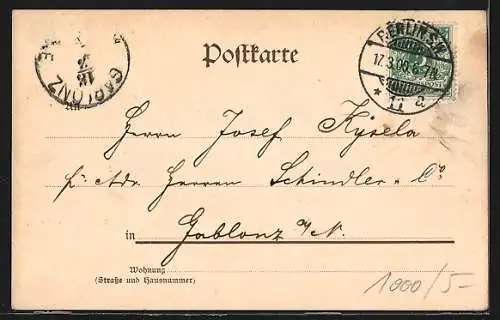 Postkarte
BERLIN S.W.
17.3.00. 8-9N.
* 11 a
GABLONZ
18
3
Herrn Josef Kysela
p. Adr. Herren Schindler & Co
in Gablonz a/N.
Wohnung
(Straße und Hausnummer)
1000/5-